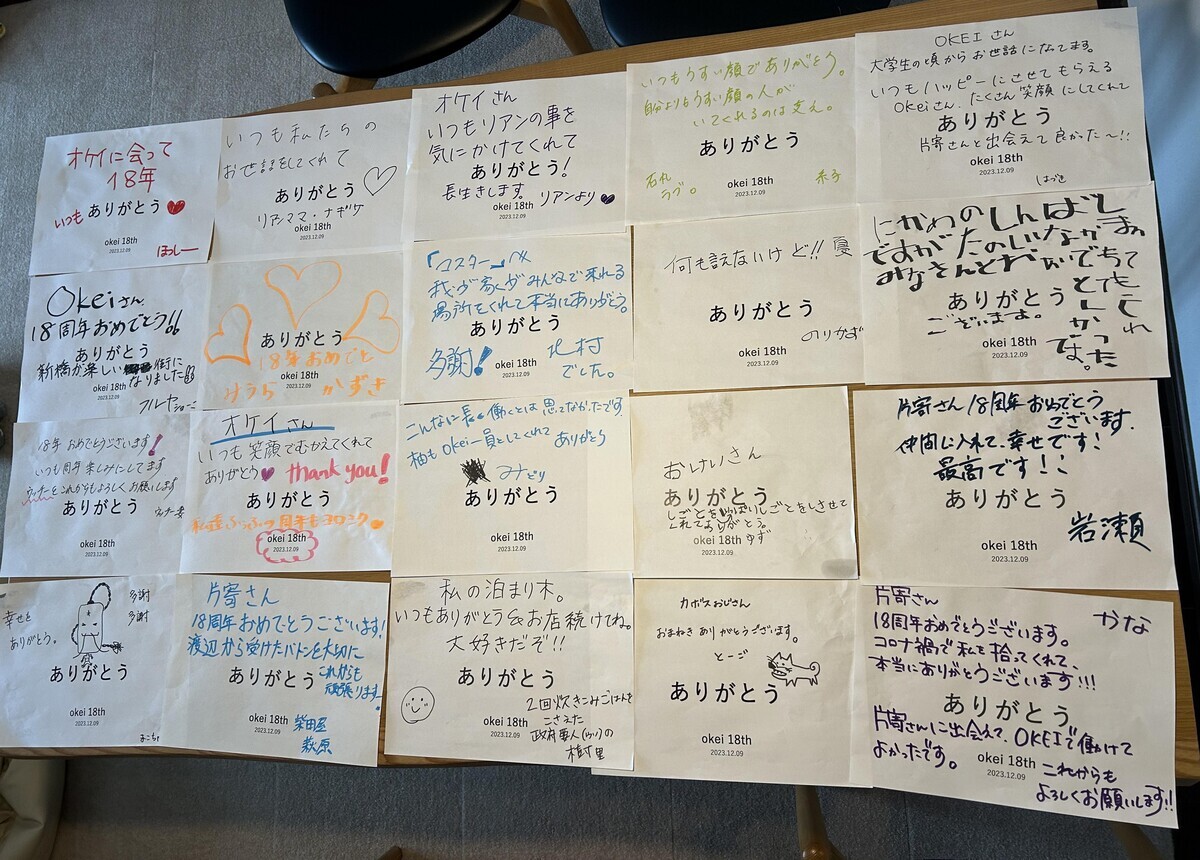 オケイに会って
18年
いつも ありがとう
okei 18th
2023.12.09
ほっしー
いつも私たちの
お世話をしてくれて
ありがとう
リアンママ・ナギサ
okei 18th
2023.12.09
オケイさん
いつもリアンの事を
気にかけてくれて
ありがとう!
長生きします。
okei 18th
リアンより
2023.12.09
いつもうすい顔でありがとう。
自分よりもうすい顔の人が
いてくれるのは支え。
ありがとう
ラブ。
okei 18th
2023.12.09
OKEI さん
大学生の頃からお世話になってます。
いつもハッピーにさせてもらえる
Okeiさん、たくさん笑顔にしてくれて
ありがとう
片寄さんと出会えて良かった〜!!
okei 18th
2023.12.09
はづき
Okeiさん
18周年おめでとう!!
ありがとう
新橋が楽しい街に
なりました
okei 18th
2023.12.09
フルヤ
ありがとう
18年おめでと
okei 18th
2023.12.09
みうら かずき
「マスター」へ
我が家がみんなで来れる
場所をくれて本当にありがとう。
ありがとう
多謝!
北村
でした。
okei 18th
2023.12.09
何も言えないけど!!
ありがとう
のりかず
okei 18th
2023.12.09
ありがとう
ございます。
okei 18th
2023.12.09
18年おめでとうございます!
いつも周年楽しみにしてます
これからもよろしくお願いします
ありがとう
okei 18th
2023.12.09
オケイさん
いつも笑顔でむかえてくれて
ありがとう
thank you!
ありがとう
私達ふうふの周年もヨロシク
okei 18th
2023.12.09
こんなに長く働くとは思ってなかったです
柚もokei一員としてくれて ありがとう
みどり
ありがとう
okei 18th
2023.12.09
おけいさん
ありがとう
しごとをしごとをしさせて
くれてありがとう。
okei 18th
ゆず
2023.12.09
片寄さん18周年おめでとう
ございます.
仲間に入れて、幸せです!
最高です!!
ありがとう
okei 18th
2023.12.09
岩瀬
幸せと
ありがとう。
多謝
多謝
ありがとう
okei 18th
2023.12.09
片寄さん
18周年おめでとうございます!
渡辺から受けたバトンを大切に
ありがとう
これからも
頑張ります。
okei 18th
2023.12.09
柴田屋
萩原
私の泊まり木。
いつもありがとう&お店続けてね。
大好きだぞ!!
ありがとう
2回炊きこみごはんを
こさえた
okei 18th
2023.12.09
政府要人(ウソ)の
植村里
カボスおじさん
おまねきありがとうございます。
とーご
ありがとう
okei 18th
2023.12.09
片寄さん
かな
18周年おめでとうございます。
コロナ禍で私を拾ってくれて、
本当にありがとうございます!!!
ありがとう
片寄さんに出会えて、OKEIで働けて
よかったです。
okei 18th
2023.12.09
これからも
よろしくお願いします!!